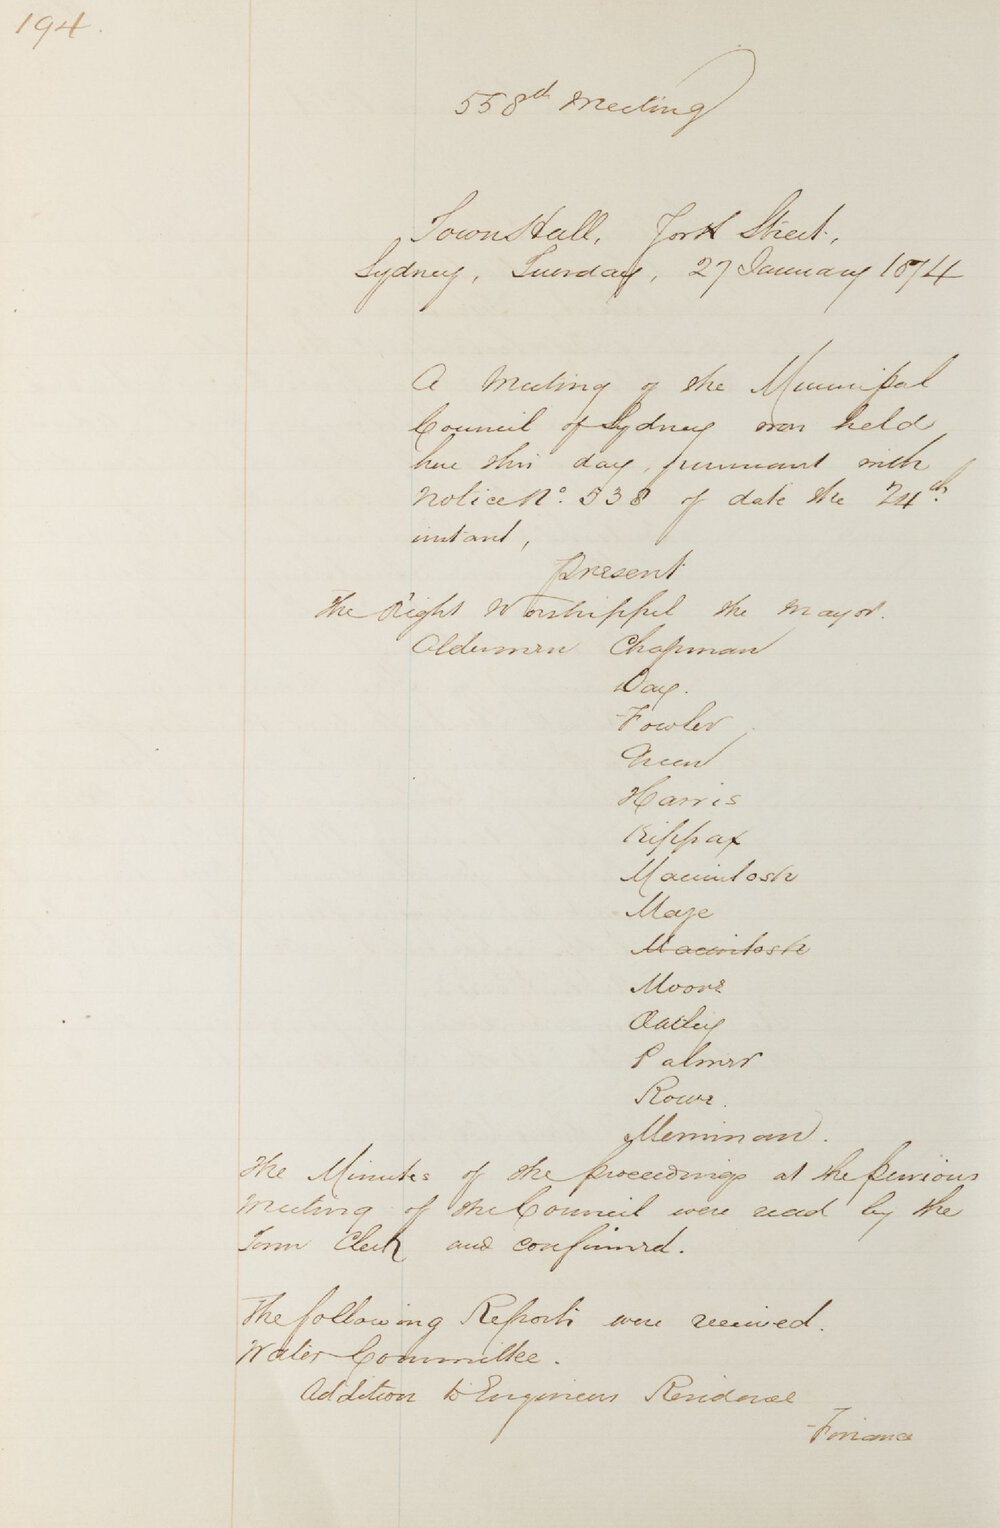 194.
558th Meeting
Town Hall, York Street,
Sydney, Tuesday, 27 January 1874
A Meeting of the Municipal
Council of Sydney was held
here this day, pursuant with
Notice No. 538 of date the 24th.
instant,
Present
The Right Worshipful the Mayor.
Aldermen Chapman
Day.
Fowler
Green
Harris
Kippax
Macintosh
Maze
Macintosh
Moore
Oatley
Palmer
Rowe.
Merriman.
The Minutes of the proceedings at the previous
Meeting of the Council were read by the
Town Clerk and confirmed.
The following Reports were received.
Water Committee.
Addition to Engineers Residence
Finance